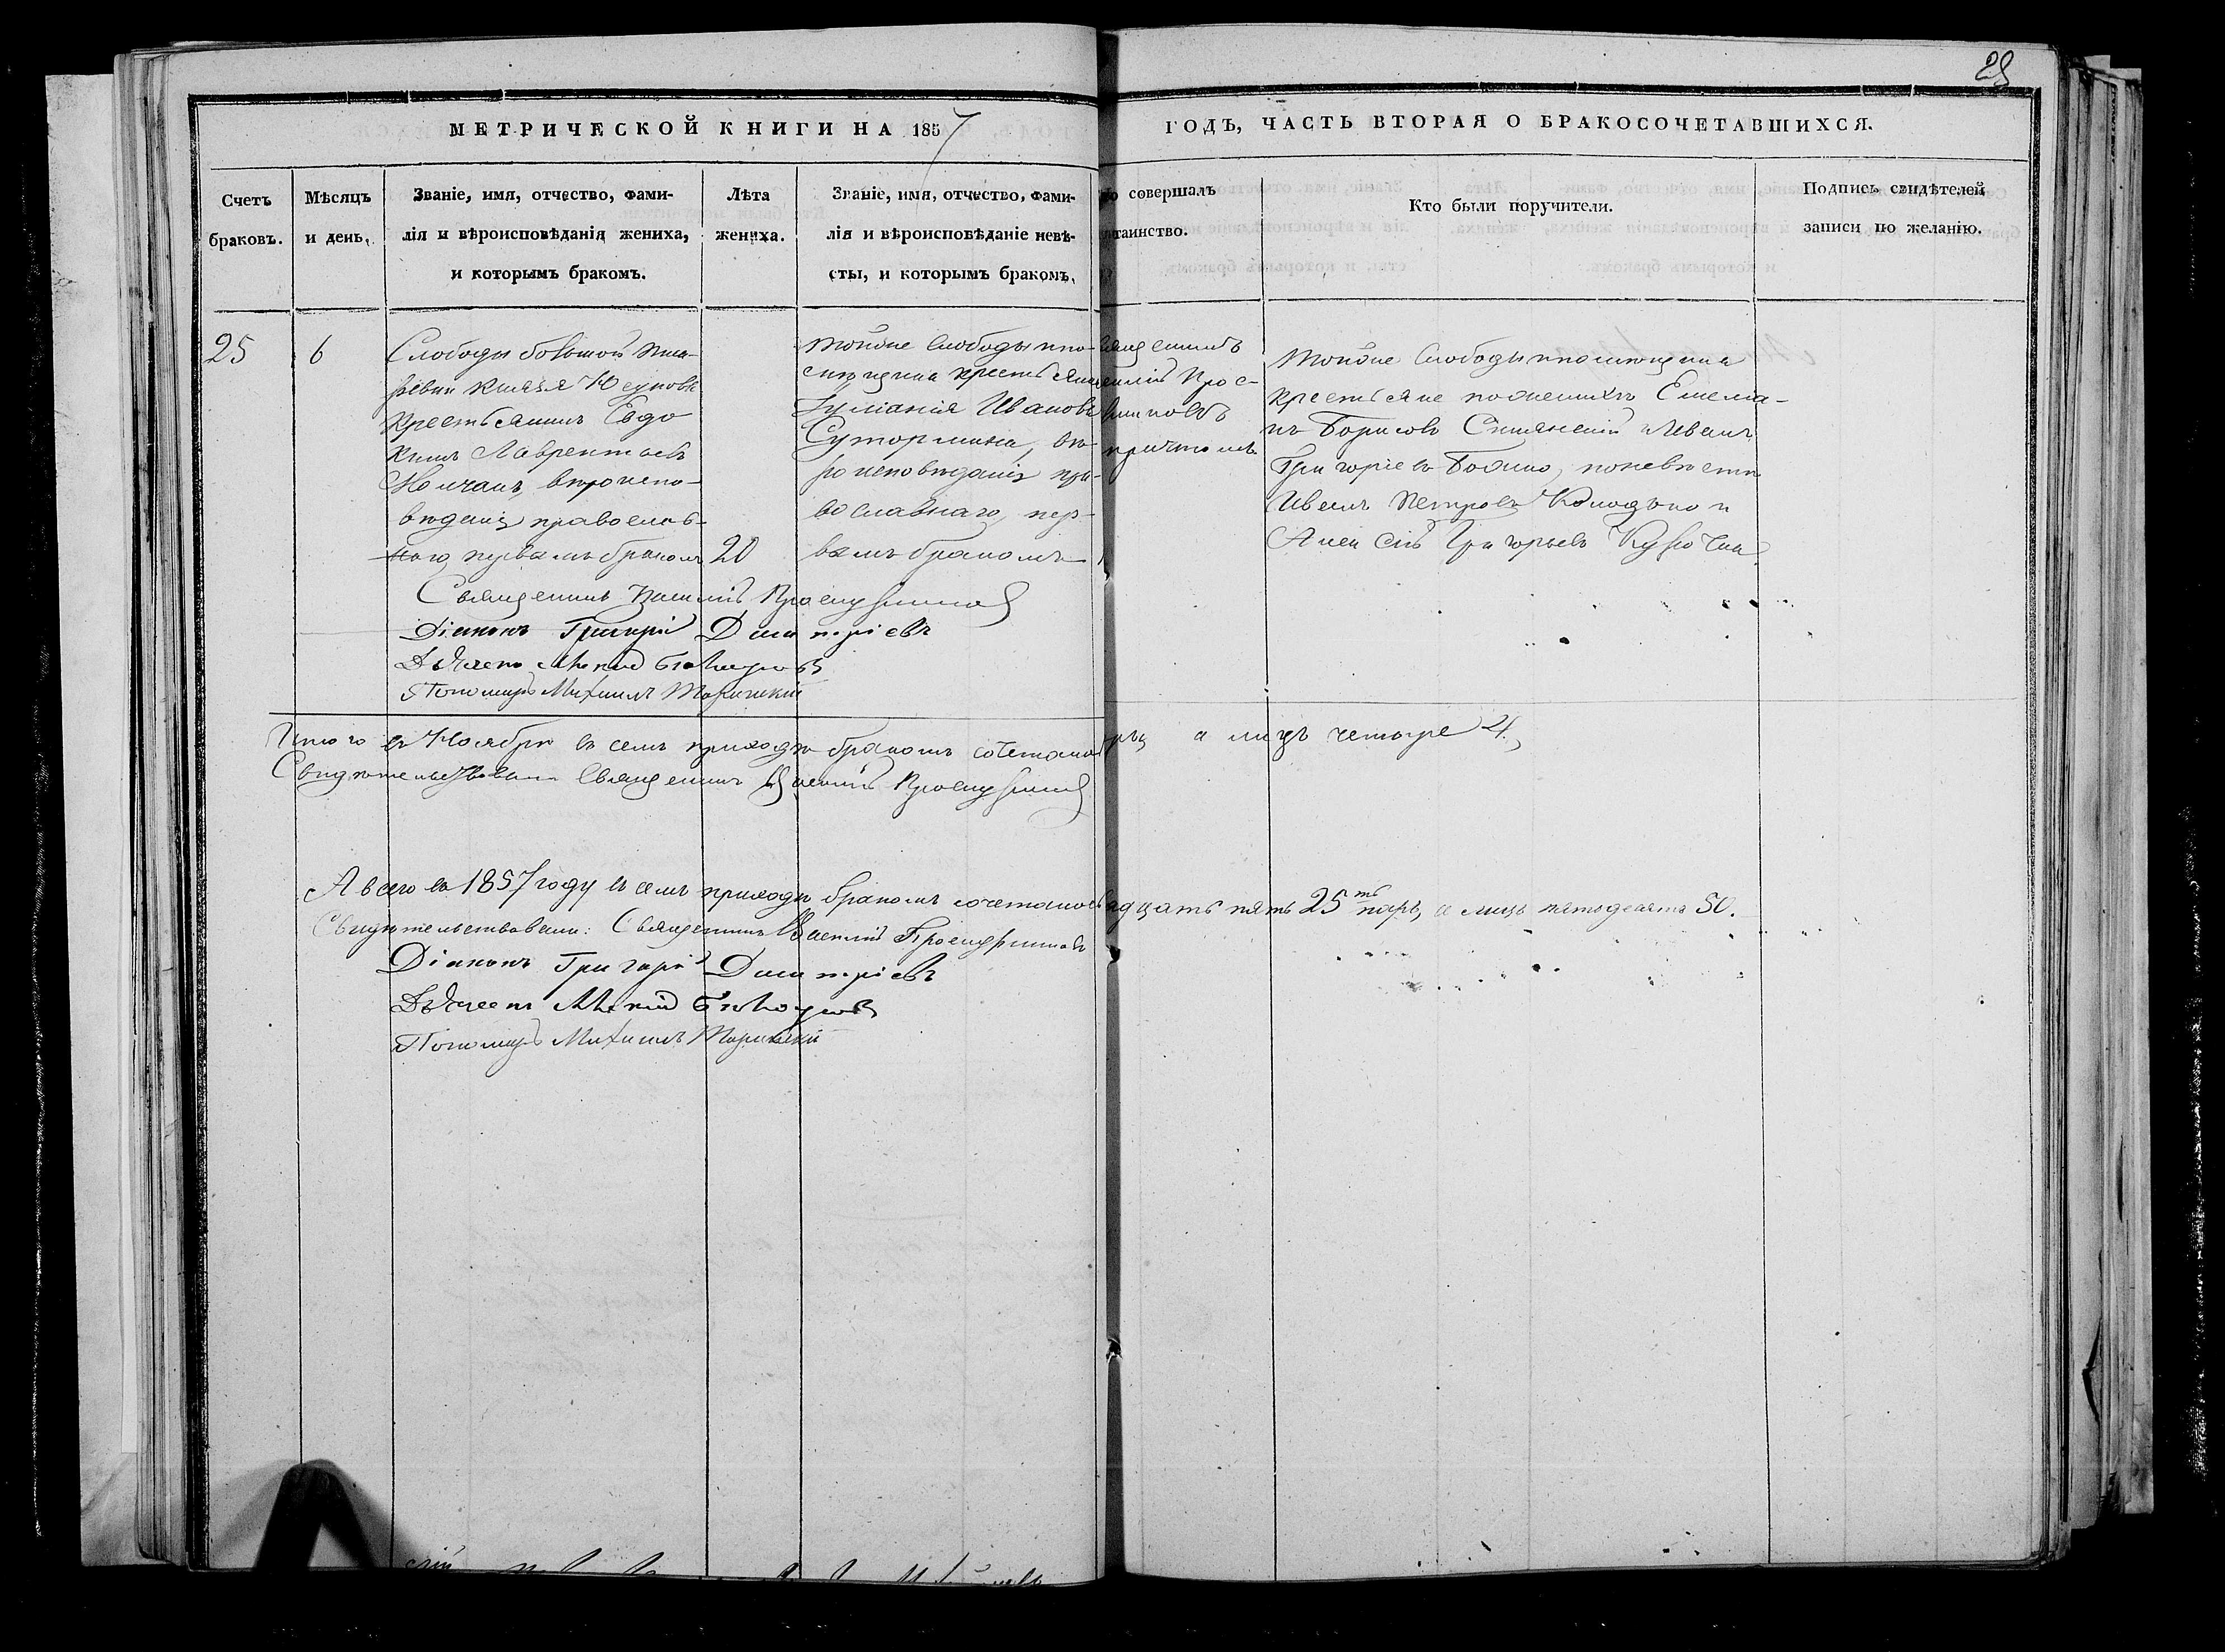 28
МЕТРИЧЕСКОЙ КНИГИ НА 1857
ГОДЪ, ЧАСТЬ ВТОРАЯ О БРАКОСОЧЕТАВШИХСЯ.
Счетъ
браковъ.
Мѣсяцъ
и день.
Званіе, имя, отчество, фами-
лія и вѣроисповѣданія жениха,
и которымъ бракомъ.
Лѣта
жениха.
Званіе, имя, отчество, фами-
лія и вѣроисповѣданіе невѣ-
сты, и которымъ бракомъ.
совершалъ
таинство.
Кто были поручители.
Подпись свидѣтелей
записи по желанію.
25
6
Слободы большой Писа-
ревки князя Юсупова
крестьянинъ Евдо
кимъ Лаврентьевъ
вѣроиспо-
вѣданія православ-
наго, первымъ бракомъ
20
тойже слободы
крестьян
Іуліанія Иванова
Сутормина, вѣ-
роисповѣданія пра-
вославнаго, пер-
вымъ бракомъ
Прос-
причтомъ
тойже слободы
крестьяне по женихѣ Емелиа-
нъ Борисовъ Иванъ
Григоріевъ по невѣсте
Иванъ Петровъ и
Алексѣй Григорьевъ
Священникъ Василій
Діаконъ Григорій Димитріевъ
Дьячекъ
Пономарь Михаилъ
Итого въ Ноябрѣ въ семъ приходѣ бракомъ сочеталось
а лицъ четыре 4,
Свидѣтельствовали Священникъ Василій
А всего въ 1857 году въ семъ приходѣ бракомъ сочеталось
адцать пять 25ть паръ, а лицъ пятьдесятъ 50.
Свидѣтельствовали: Священникъ Василій
Діаконъ Григорій Димитріевъ
Дьячекъ
Пономарь Михаилъ